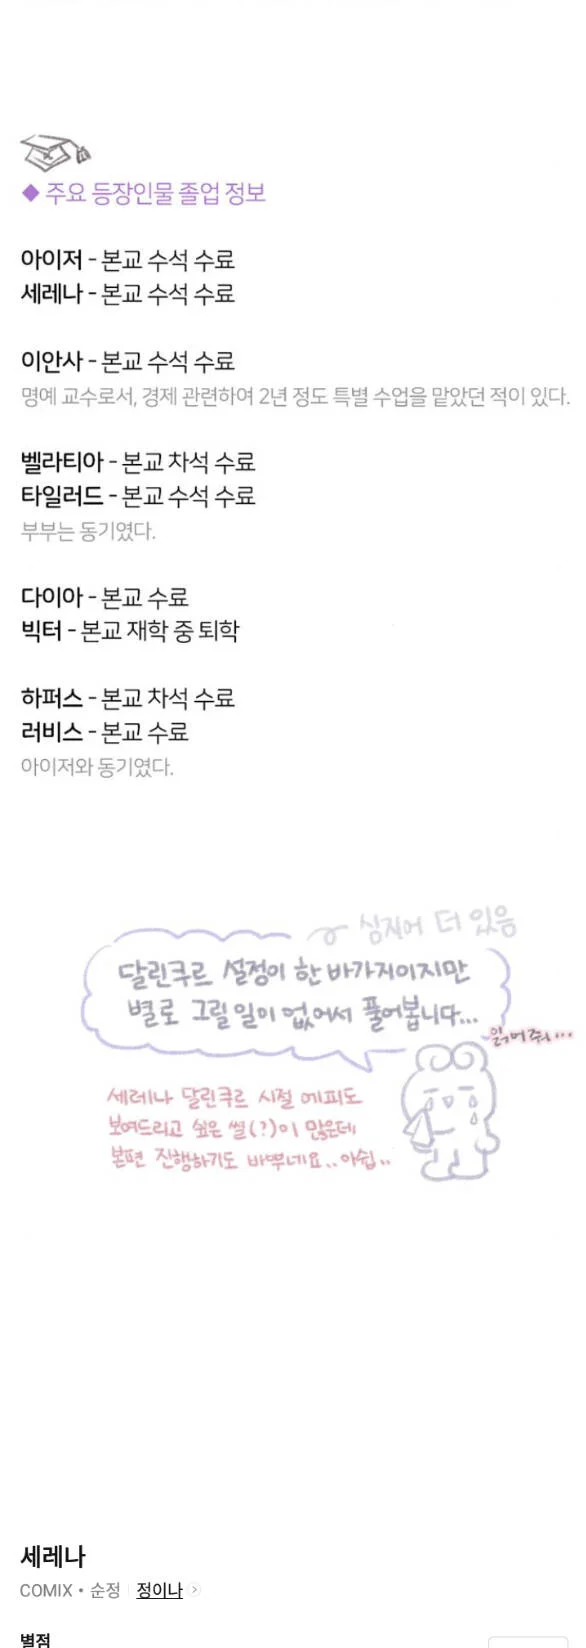 ◆ 주요 등장인물 졸업 정보
아이저 - 본교 수석 수료
세레나 - 본교 수석 수료
이안사 - 본교 수석 수료
명예 교수로서, 경제 관련하여 2년 정도 특별 수업을 맡았던 적이 있다.
벨라티아 - 본교 차석 수료
타일러드 - 본교 수석 수료
부부는 동기였다.
다이아 - 본교 수료
빅터 - 본교 재학 중 퇴학
하퍼스 - 본교 차석 수료
러비스 - 본교 수료
아이저와 동기였다.
심지어 더 있음
달린쿠르 설정이 한 바가지이지만
별로 그릴 일이 없어서 풀어봅니다...
읽어줘...
세레나 달린쿠르 시절 에피도
보여드리고 싶은 썰(?)이 많은데
본편 진행하기도 바쁘네요.. 아쉽..
세레나
COMIX • 순정 정이나
별점